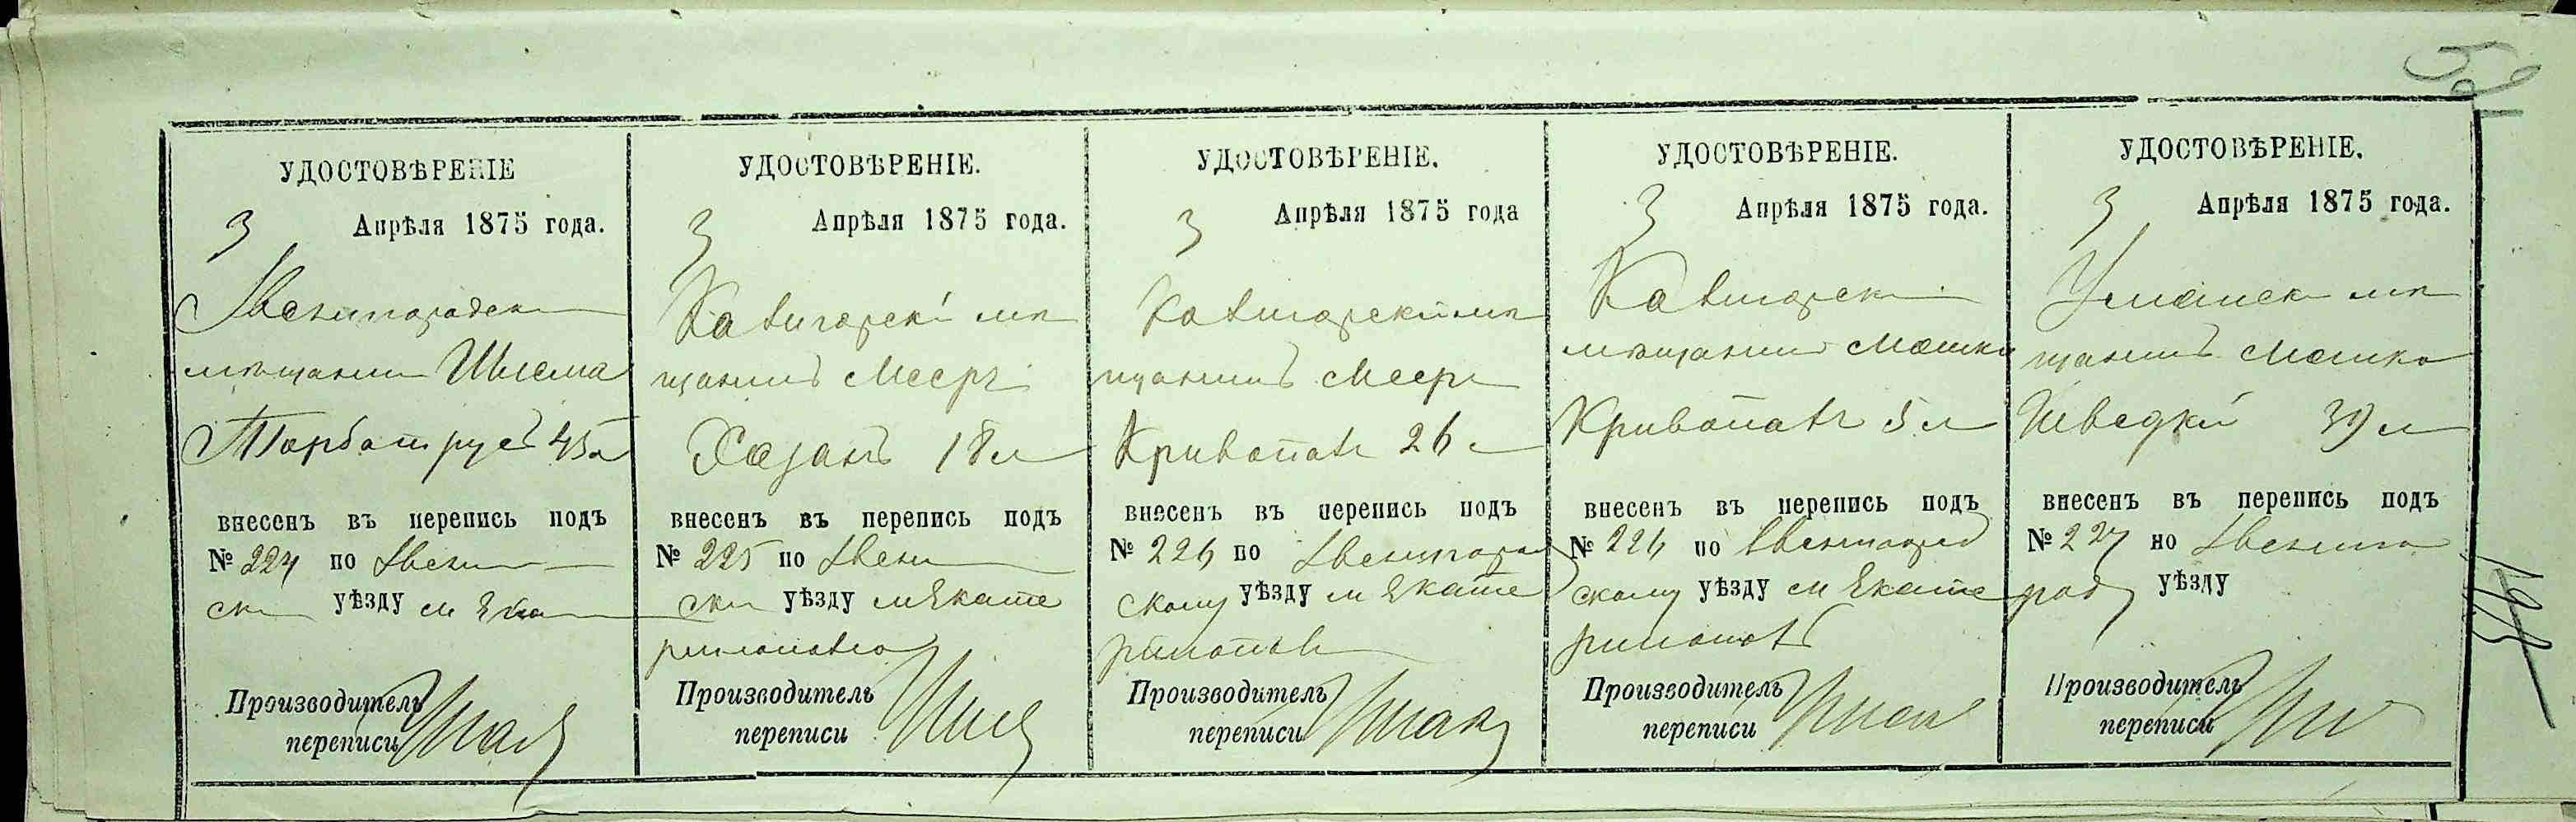 УДОСТОВѢРЕНІЕ
3 Апрѣля 1875 года.
Звенигородск
мѣщанин Шлема
45 л
внесенъ въ перепись подъ
№ 224 по Звени
ск уѣзду м Ека
Производитель
переписи
УДОСТОВѢРЕНІЕ.
3 Апрѣля 1875 года.
Кавнгорскі мѣ
щанинъ Мееръ
Хазанъ 18 л
внесенъ въ перепись подъ
№ 225 по Звени
ск уѣзду м Екате
ринополю
Производитель
переписи
УДОСТОВѢРЕНІЕ.
3 Апрѣля 1875 года
Катигорскій мѣ
щанинъ Меер
Кривопат 26 л
внесенъ въ перепись подъ
№ 226 по Звенигород
скому уѣзду м Екате
ринопол
Производитель
переписи
УДОСТОВѢРЕНІЕ.
3 Апрѣля 1875 года.
Катигорск
мѣщанин Мошко
Кривопат 5 л
внесенъ въ перепись подъ
№ 226 по Звенигород
скому уѣзду м Екате
ринопол
Производитель
переписи
УДОСТОВѢРЕНІЕ.
3 Апрѣля 1875 года.
Уманск мѣ
щанинъ Мошко
Шведкій 39 л
внесенъ въ перепись подъ
№ 227 по Звениго
род уѣзду
Производитель
переписи